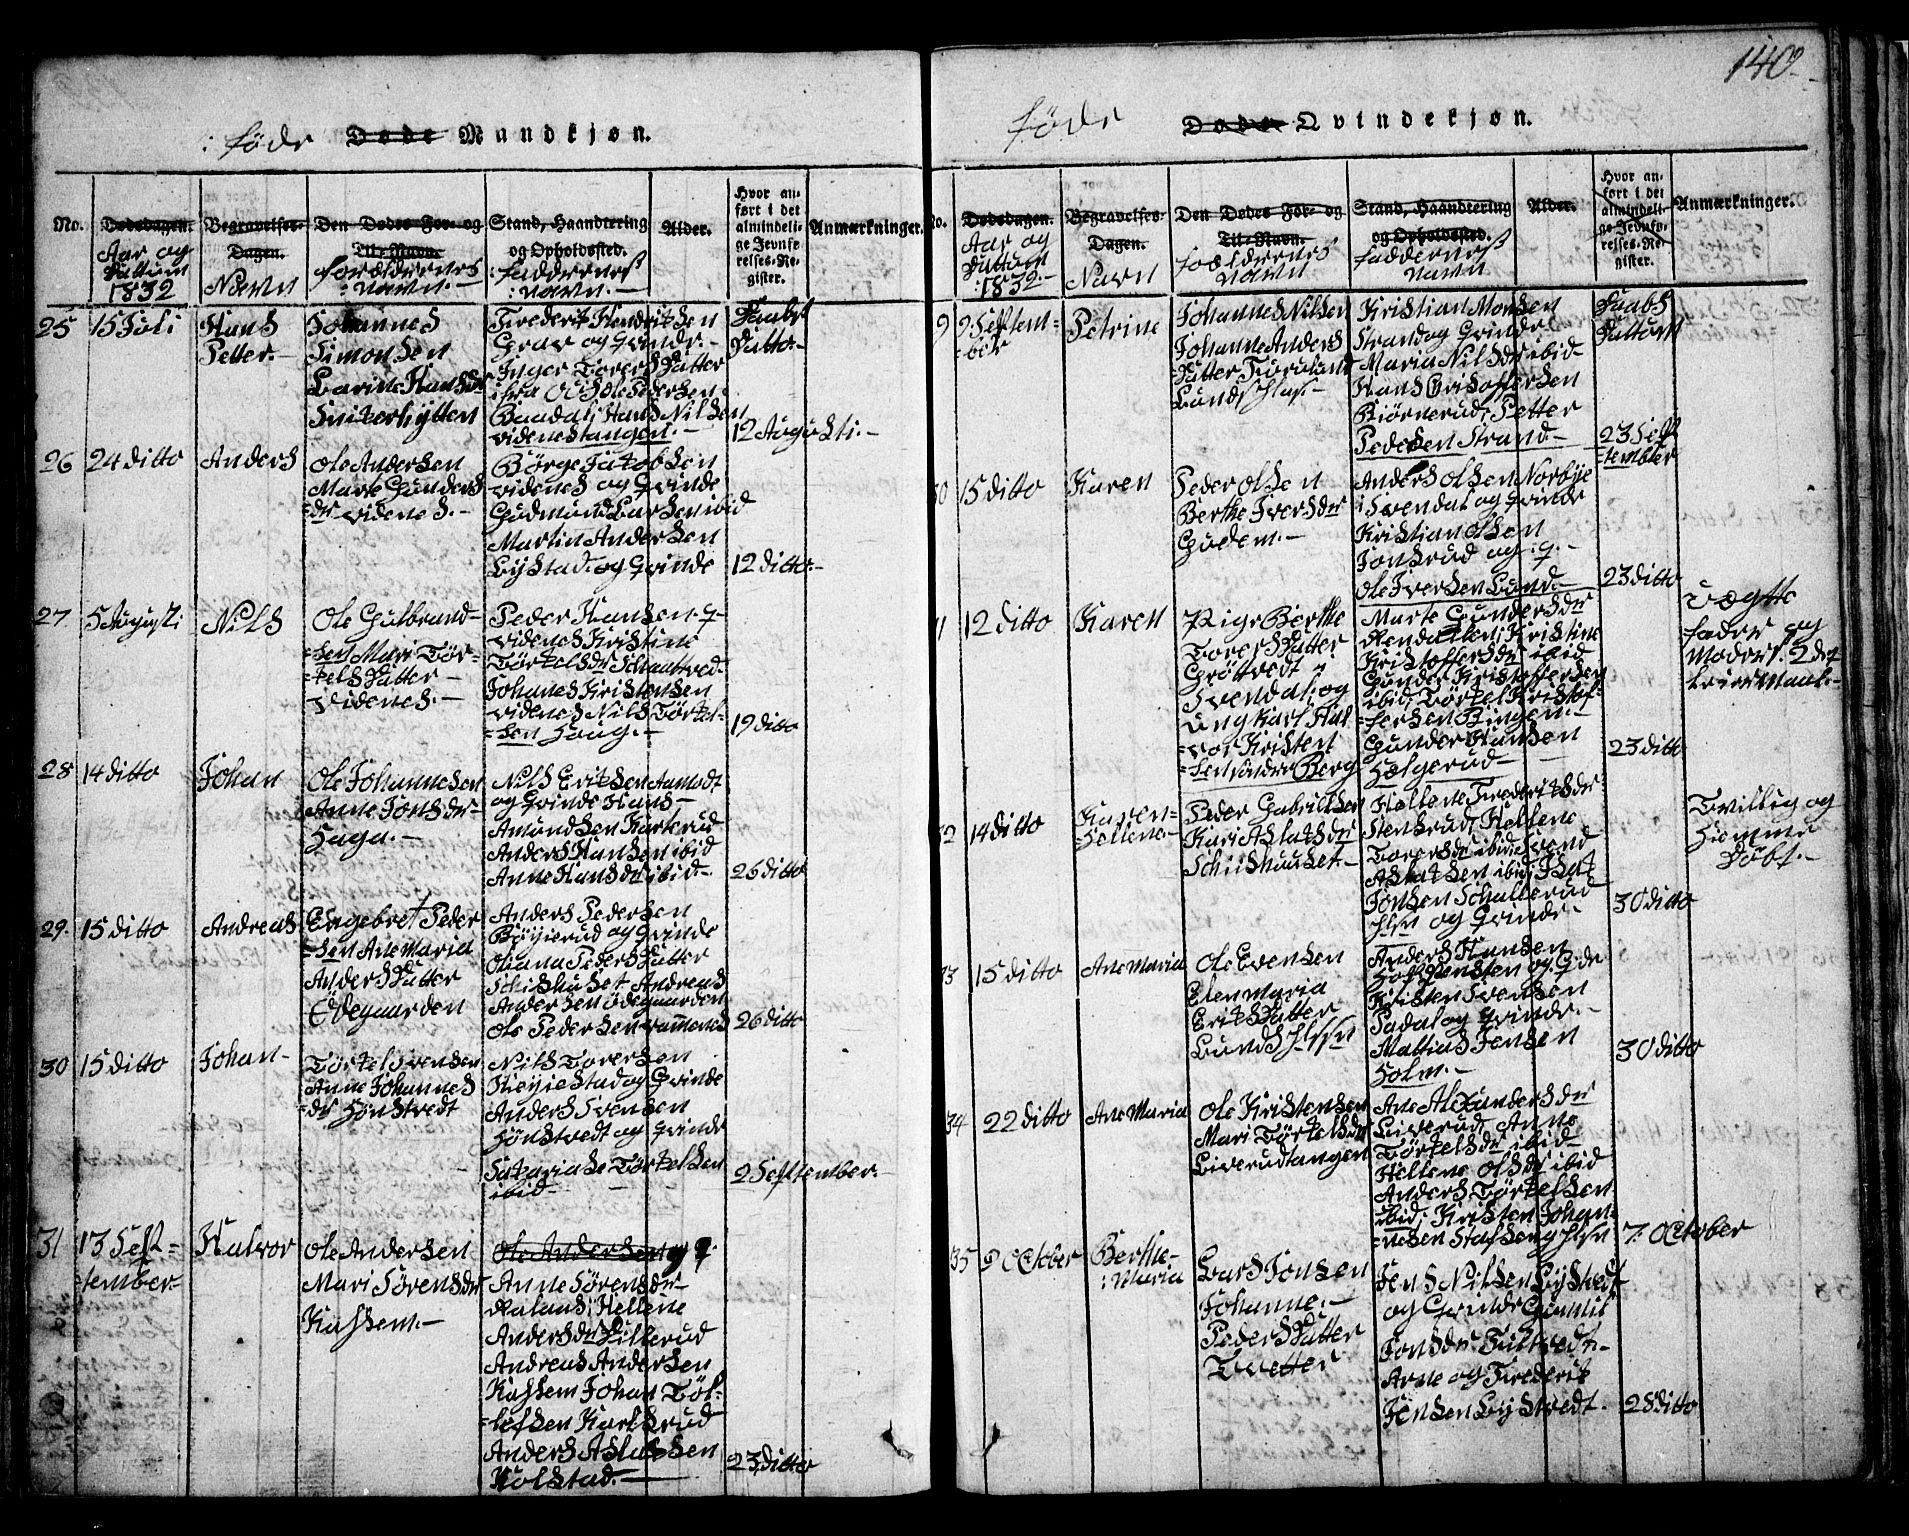 140
føde Døde Mandkjøn.
No.
Dødsdagen.
Aar og
Dattum
1832
Begravelses-
Dagen.
Navn
Den Dødes For- og
Til-Navn.
forældrernes
: navn. -
Stand, Haandtering
og Opholdssted.
faddernes
: navn. -
Alder.
Hvor an-
ført i det
almindeli-
ge Jevnfø-
relses-Re-
gister.
Anmærkninger.
25
15 Juli
Hans
Petter. -
Johannes
Simonsen
Karine Hansdr
Snikerhytten
Frederik Hendriksen
Grav og Qvinde. -
Inger Torers Datter
ibid Ole Pedersen
Hans Nilsen
videnestangen. -
Daabs
Datto. -
12 Augusti. -
26
24 ditto
Anders
Ole Andersen
Marte Gunders
=dr videnes. -
Børge Jakobsen
videnes og Qvinde
Gudmund Larsen ibid
Martin Andersen
Lystad og Qvinde
12 ditto. -
27
5 Augusti
Nils
Ole Gulbrand-
=sen Mari Tør-
=kels Datter -
Videnes. -
Peder Hansen q-
videnes Kristine
Tørkelsdr
Johanes Kristensen
videnes Nils Tørkel-
=sen Houg. -
19 ditto
28
14 ditto
Johan
Ole Johannesen
Anne Jonsdr -
Haga. -
Nils Eriksen Aamodt
og Qvinde Hans -
Amundsen Karterud
Anders Hansen ibid
Anne Hansdr ibid. -
26 ditto
29.
15 ditto
Andreas
Engebret Peder
=sen Ane Maria
Anders Datter
Ødegaarden
Anders Pedersen
Bøyierud og Qvinde
Oliana Peders Datter
Schishuset Andreas
Andersen Ødegaarden
Ole Pedersen
26 ditto
30
15 ditto
Johan -
Tørkel Svensen
Anne Johannes
=dr Hønstvedt
Nils Torersen
Heyiestad og Qvinde
Anders Svensen
Hønstvedt og Qvinde
Sakarias Tørkelsen
ibid -
2 September. -
31
13 Sep
=tember
Halvor
Ole Andersen
Mari Sørensdr
Kassem. -
Ole Andersen og q.
Anne Sørensdr -
Hellene
Andersdr Hillerud
Andreas Andersen
Kassem Johan Tøl-
=lefsen Karlsrud
Anders Aslaksen
Kolstad. -
23 ditto
føde Døde Qvindekjøn.
No.
Dødsdagen.
Aar og
Dattum
: 1832. -
Begravelses-
Dagen.
Navn
Den Dødes For- og
Til-Navn.
foældrernes
navn
Stand, Haandtering
og Opholdssted.
faddernes
navn
Alder.
Hvor an-
ført i det
almindeli-
ge Jevnfø-
relses-Re-
gister.
Anmærkninger.
9
9 Septem-
=ber
Petrine
Johannes Nilsen
Johanne Anders
Datter
Kristian Monsen
Strand og Qvinde
Maria Nilsdr ibid -
Hans Cristoffersen
Biørnerud, Petter
Pedersen Strand -
Daabs
Dattum
23 Sep
=tember
0
15 ditto
Karen
Peder Olsen
Berthe Iversdr
Gudem. -
Anders Olsen Norbye
i Svendal og Qvinde
Kristian Olsen
Jonsrud og q. -
Ole Iversen Lund -
23 ditto
1
12 ditto
Karen
Pige Berthe
Torers Datter
Grøttvedt i
Svendal og
ung Karl Hal
=vor Kristen
=sen søndre Berg
Marte Gundersdr
Kristine
Kristoffersdr ibid
Gunder Kristoffersen
ibid, Tørkel Kristof-
=fersen Bingen. -
Gunder Hansen
Hølgerud -
23 ditto
uægtte
fader og
Moders 2 det
Leiermaal. -
2
14 ditto
Karen =
Hellene. -
Peder Gabrilsen
Kari Aslaksdr
Schiishuuset. -
Hellene Frederiksdr
Stensrud, Hellene
Torersdr ibid Svend
Aslaksen ibid
Jonsen Schullerud
og Qvinde. -
30 ditto
Tvillig og
Hiemme
Døbt. -
33
15 ditto
Ane Maria
Ole Evensen
Elen Maria
Eriks Datter
Lunds
Anders Hansen
og Qde
Kristen Svensen
Padal og Qvinde. -
Mattias Jensen
Holm. -
30 ditto
34
22 ditto
Ane Maria
Ole Kristensen
Mari Tørkelsdr
Liverudtangen
Ane Alexandersdr
Liverud Anne
Tørkelsdr ibid -
Hellene Olsdr ibid
Anders Tørkelsen
ibid, Kristen Johan-
=nesen
7. October
35
9 October
Berthe -
: Maria
Lars Jonsen
Johanne. -
Peders Datter
Tvetter
Jens Nilsen Lystvedt
og Qvinde Gunnil
Jonsdr
Arne og Frederik
Jensen Lystvedt.
28 ditto